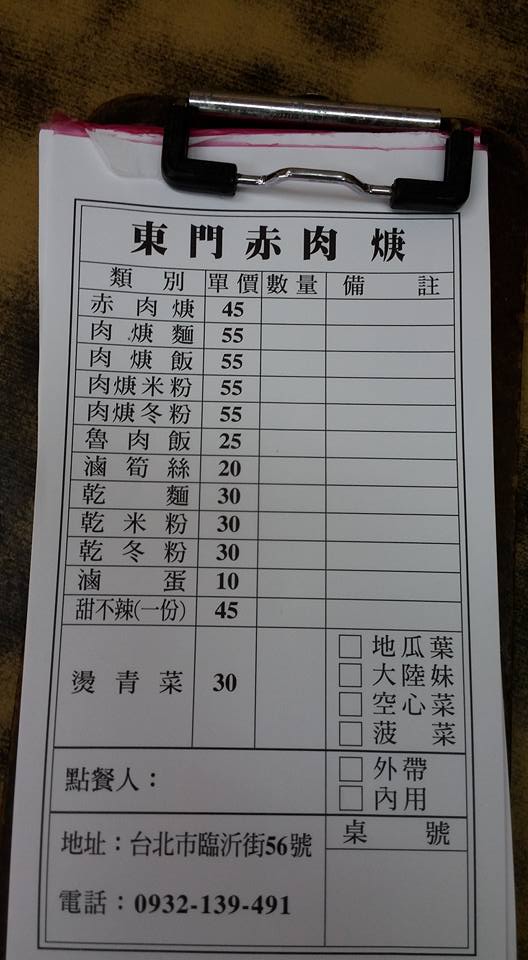 東門赤肉焿
類別 單價 數量 備註
赤肉焿 45
肉焿麵 55
肉焿飯 55
肉焿米粉 55
肉焿冬粉 55
魯肉飯 25
滷筍絲 20
乾麵 30
乾米粉 30
乾冬粉 30
滷蛋 10
甜不辣(一份) 45
燙青菜 30
□ 地瓜葉
□ 大陸妹
□ 空心菜
□ 菠菜
點餐人：
□ 外帶
□ 內用
地址：台北市臨沂街56號
電話：0932-139-491
桌號